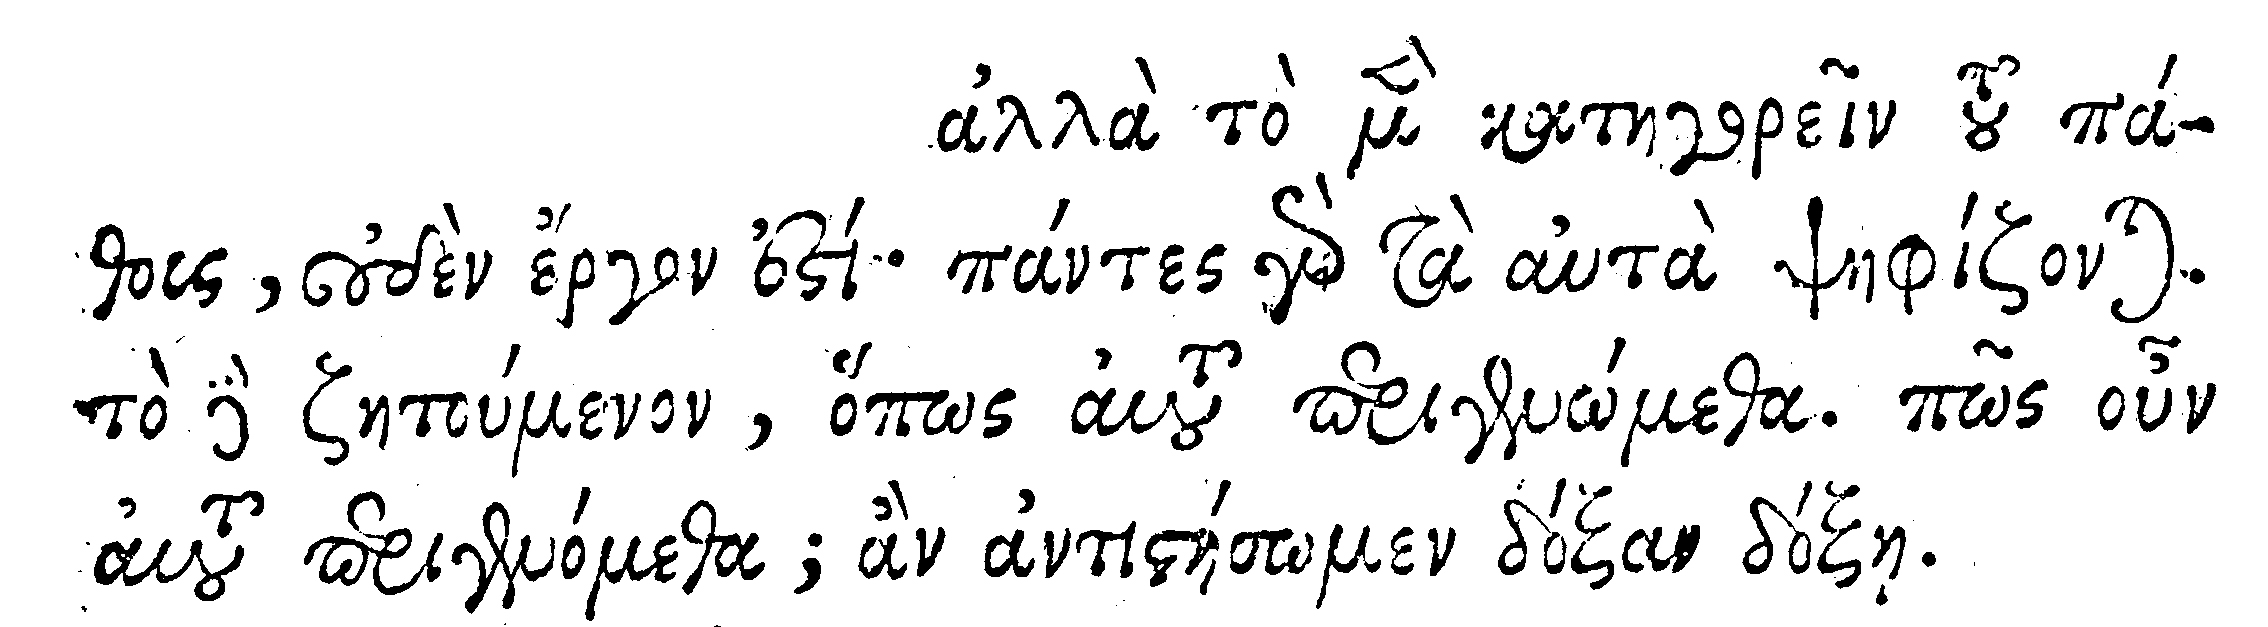 ἀλλὰ τὸ μὲν κατηγορεῖν τοῦ πά-
θους, οὐδὲν ἔργον ἐστί· πάντες γὰρ τὰ αὐτὰ ψηφίζονται.
τὸ δὲ ζητούμενον, ὅπως αὐτοῦ περιγενώμεθα. πῶς οὖν
αὐτοῦ περιγενόμεθα; ἂν ἀντιστήσωμεν δόξαν δόξῃ.